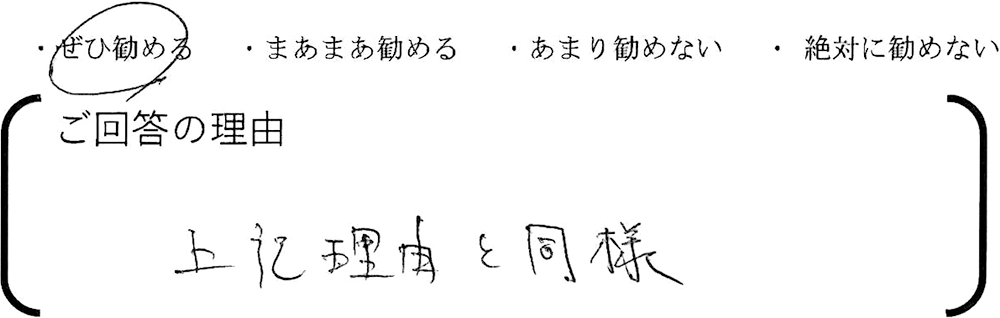 ・ぜひ勧める ・まあまあ勧める ・あまり勧めない ・絶対に勧めない
ご回答の理由
上記理由と同様